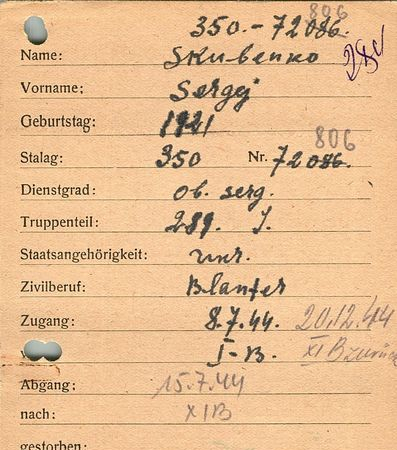 806
350.-72086.
Name: Skubenko
Vorname: Sergej
Geburtstag: 1921
806
Stalag: 350 Nr. 72086.
Dienstgrad: ob. serg.
Truppenteil: 289. J.
Staatsangehörigkeit: unr.
Zivilberuf:
Zugang: 8.7.44. 20.12.44
I-B. XI B zurück
Abgang: 15.7.44
nach: XIB
gestorben: